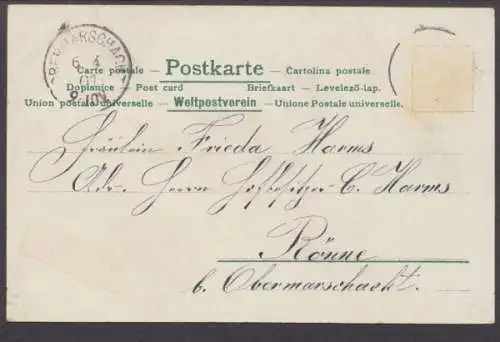 OBERMARSCHACHT
6 4
01
Carte postale — Postkarte — Cartolina postale
Dopisnice — Post card Briefkaart — Levelező-lap.
Union postale universelle. — Weltpostverein — Unione Postale universelle.
Fräulein Frieda Harms
Adr. Herrn Hofbesitzer C. Harms
Rönne
b. Obermarschacht.